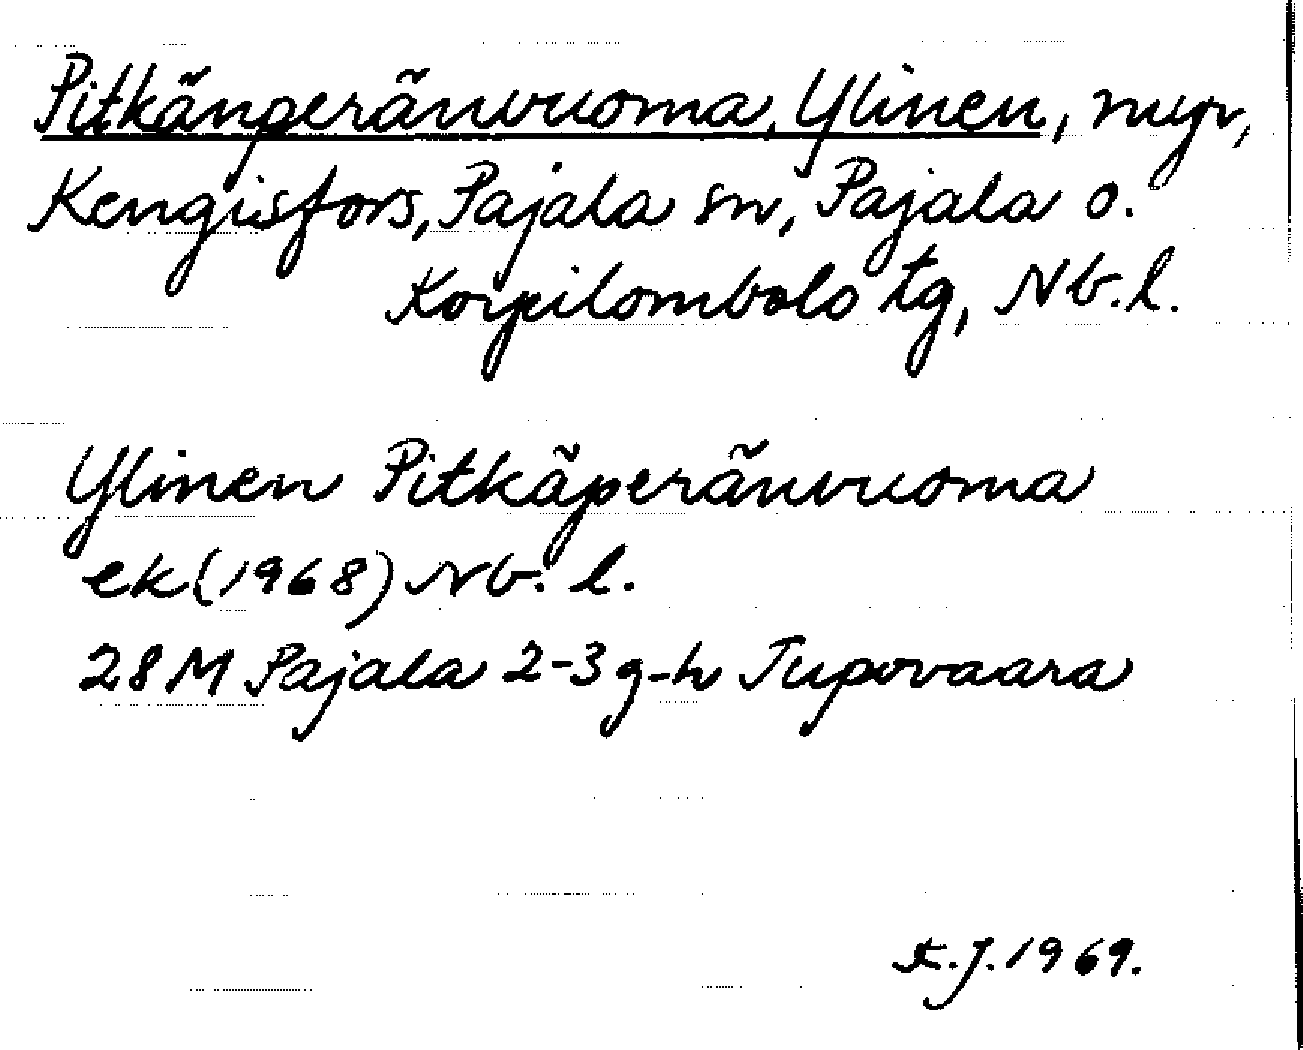 Pitkänperänvuoma, Ylinen, myr,
Kengisfors, Pajala sn, Pajala o.
Korpilombolo tg, Nb. l.
Ylinen Pitkäperänvuoma
ek (1968) Nb. l.
28 M Pajala 2-3 g-h Jupovaara
K.J. 1969.